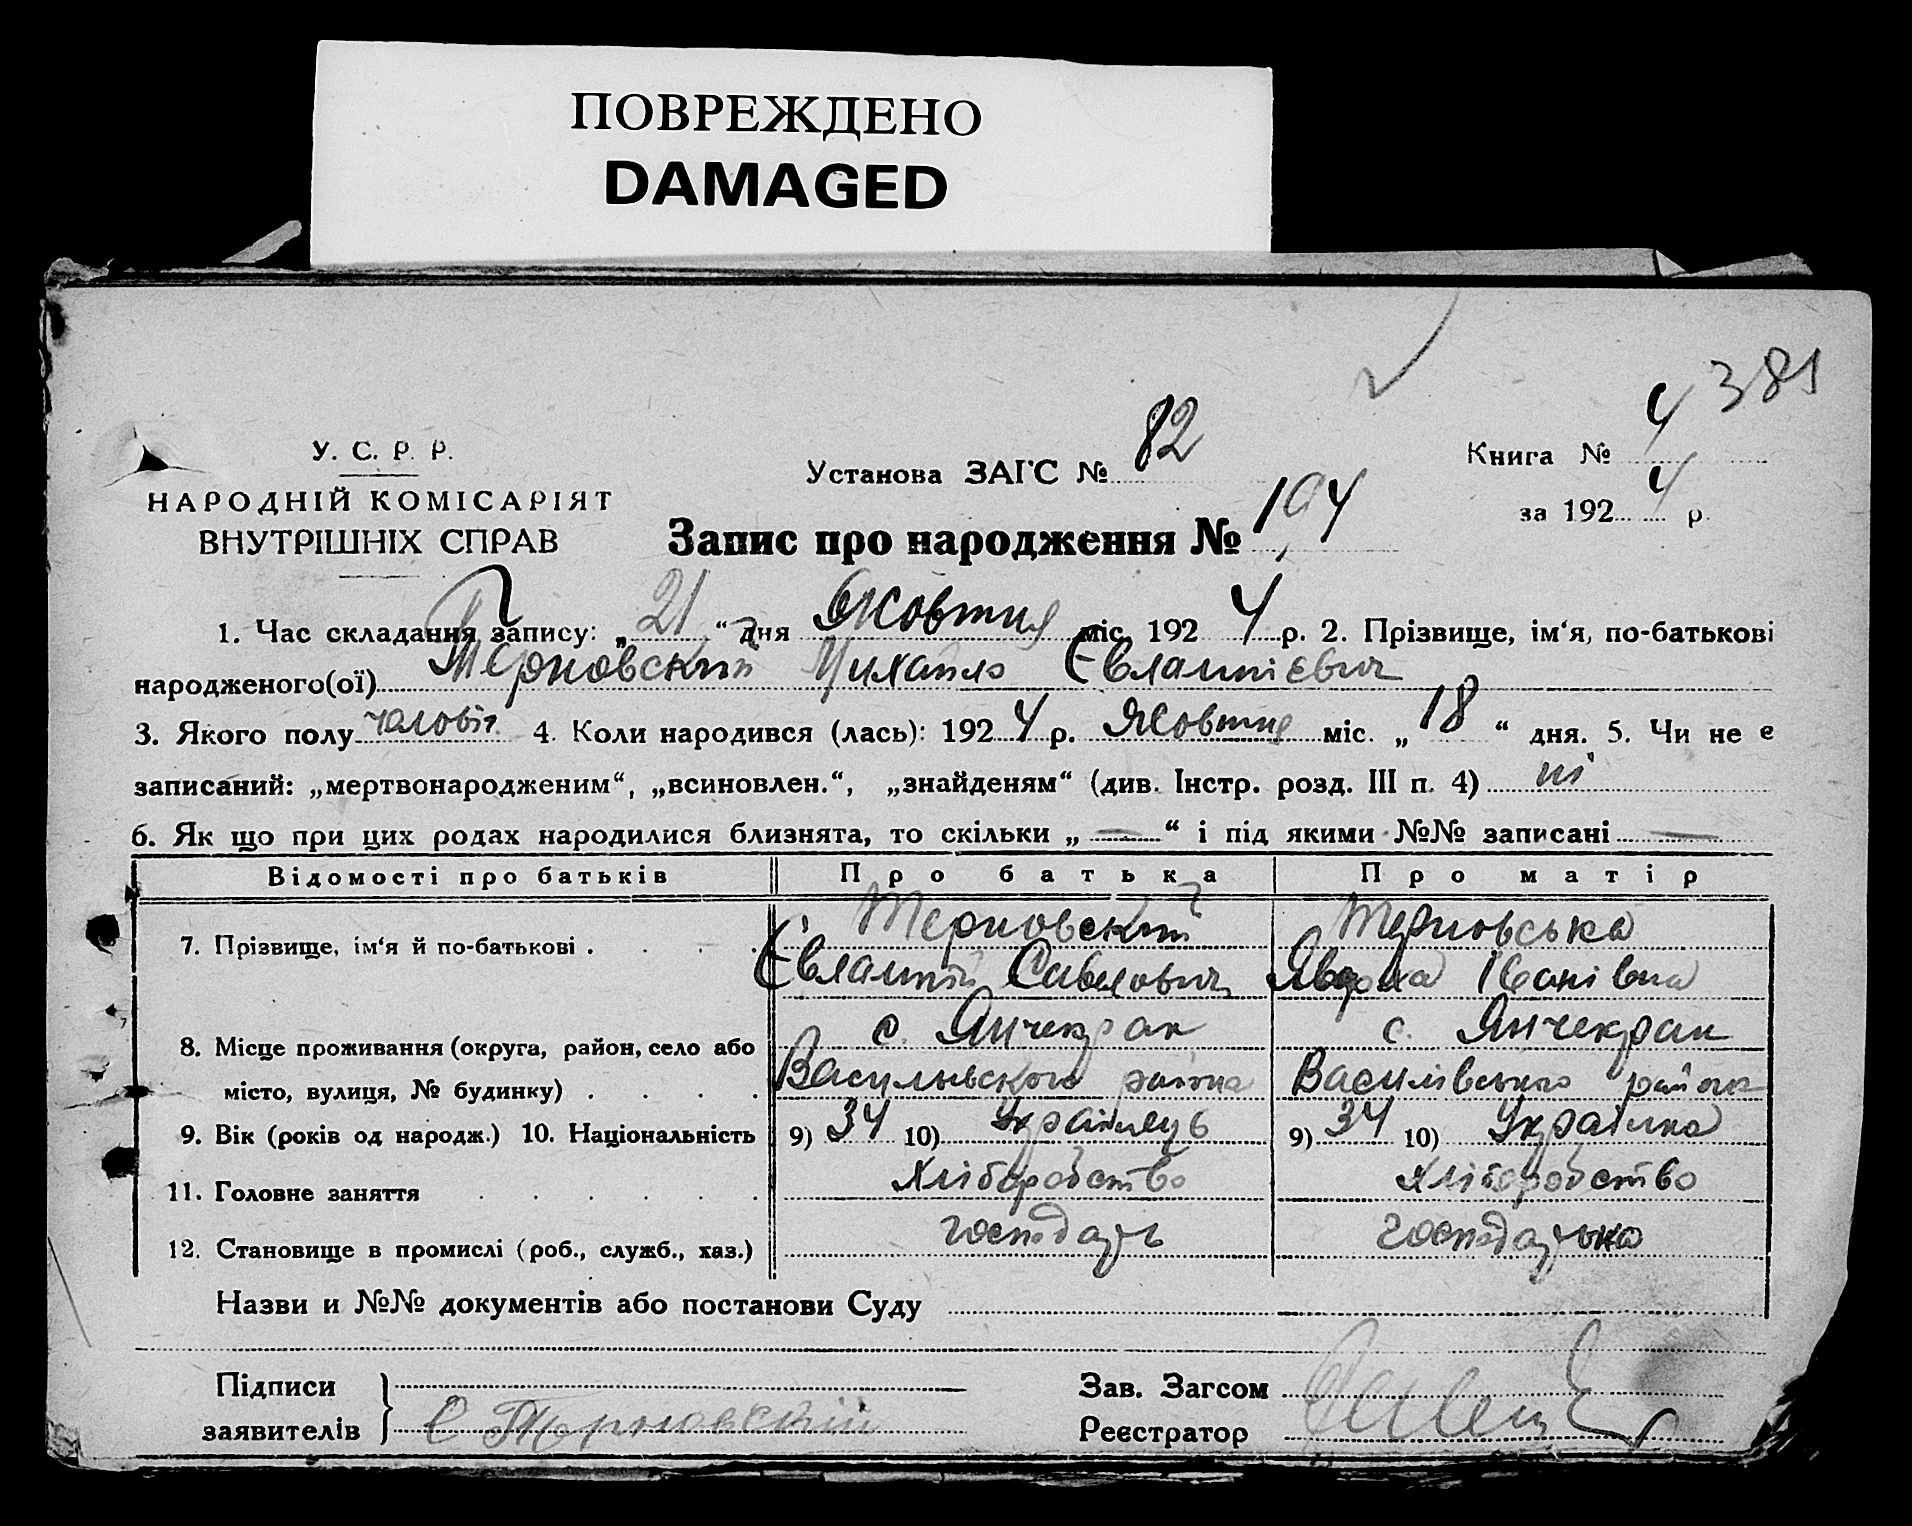 ПОВРЕЖДЕНО
DAMAGED
381
У. С. Р. Р.
НАРОДНІЙ КОМІСАРІЯТ
ВНУТРІШНІХ СПРАВ
Установа ЗАГС № 82
Книга № 4
за 1924 р.
Запис про народження № 194
1. Час складання запису: „21“ дня Жовтня міс. 1924 р. 2. Прізвище, ім‘я, по-батькові
народженого(ої) Терновский Михайло Євлампієвич
3. Якого полу чоловіч. 4. Коли народився (лась): 1924 р. Жовтня міс. „18“ дня. 5. Чи не є
записаний: „мертвонародженим“, „всиновлен.“, „знайденям“ (див. Інстр. розд. III п. 4) ні
6. Як що при цих родах народилися близнята, то скільки „—“ і під якими №№ записані —
Відомості про батьків Про батька Про матір
7. Прізвище, ім‘я й по-батькові . . . . Терновский Терновська
Євлампій Савелович Явдоха Іванівна
8. Місце проживання (округа, район, село або с. Янчекрак с. Янчекрак
місто, вулиця, № будинку) . . . . Васильвского району Василівського району
9. Вік (років од народж.) 10. Національність 9) 34 10) Українець 9) 34 10) Українка
11. Головне заняття . . . . . . Хліборобство Хліборобство
12. Становище в промислі (роб., служб., хаз.) господарь господарька
Назви и №№ документів або постанови Суду
Підписи
заявителів } Е Терновский
Зав. Загсом
Реєстратор